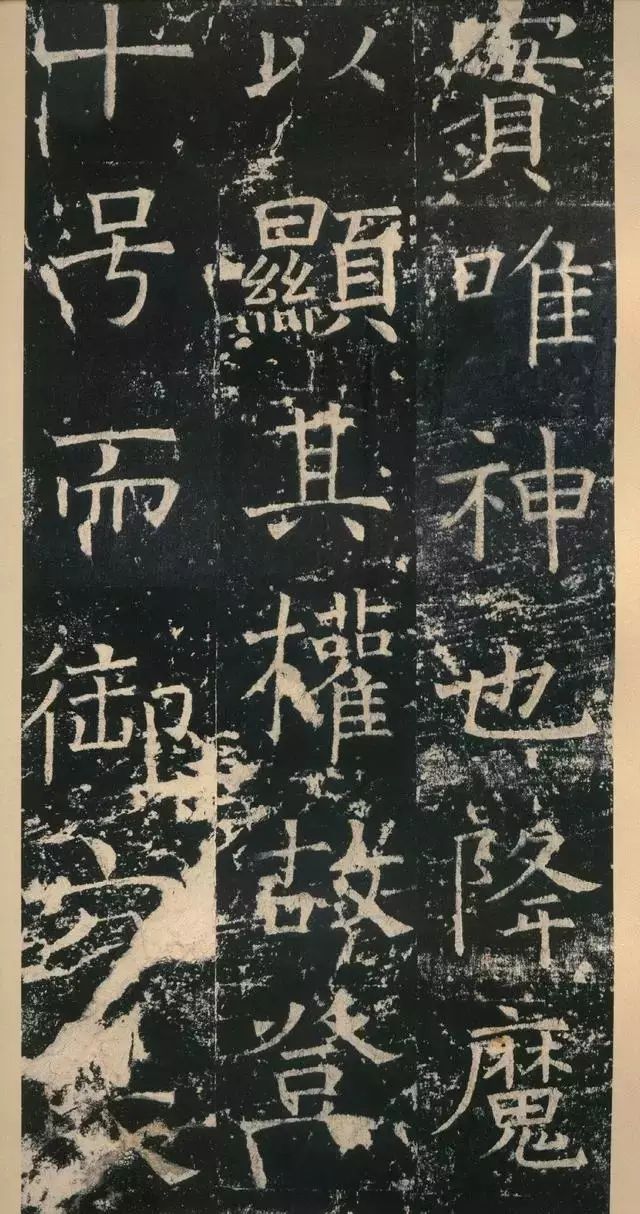 賓唯神也降魔
以顯其權故登
十号而御六